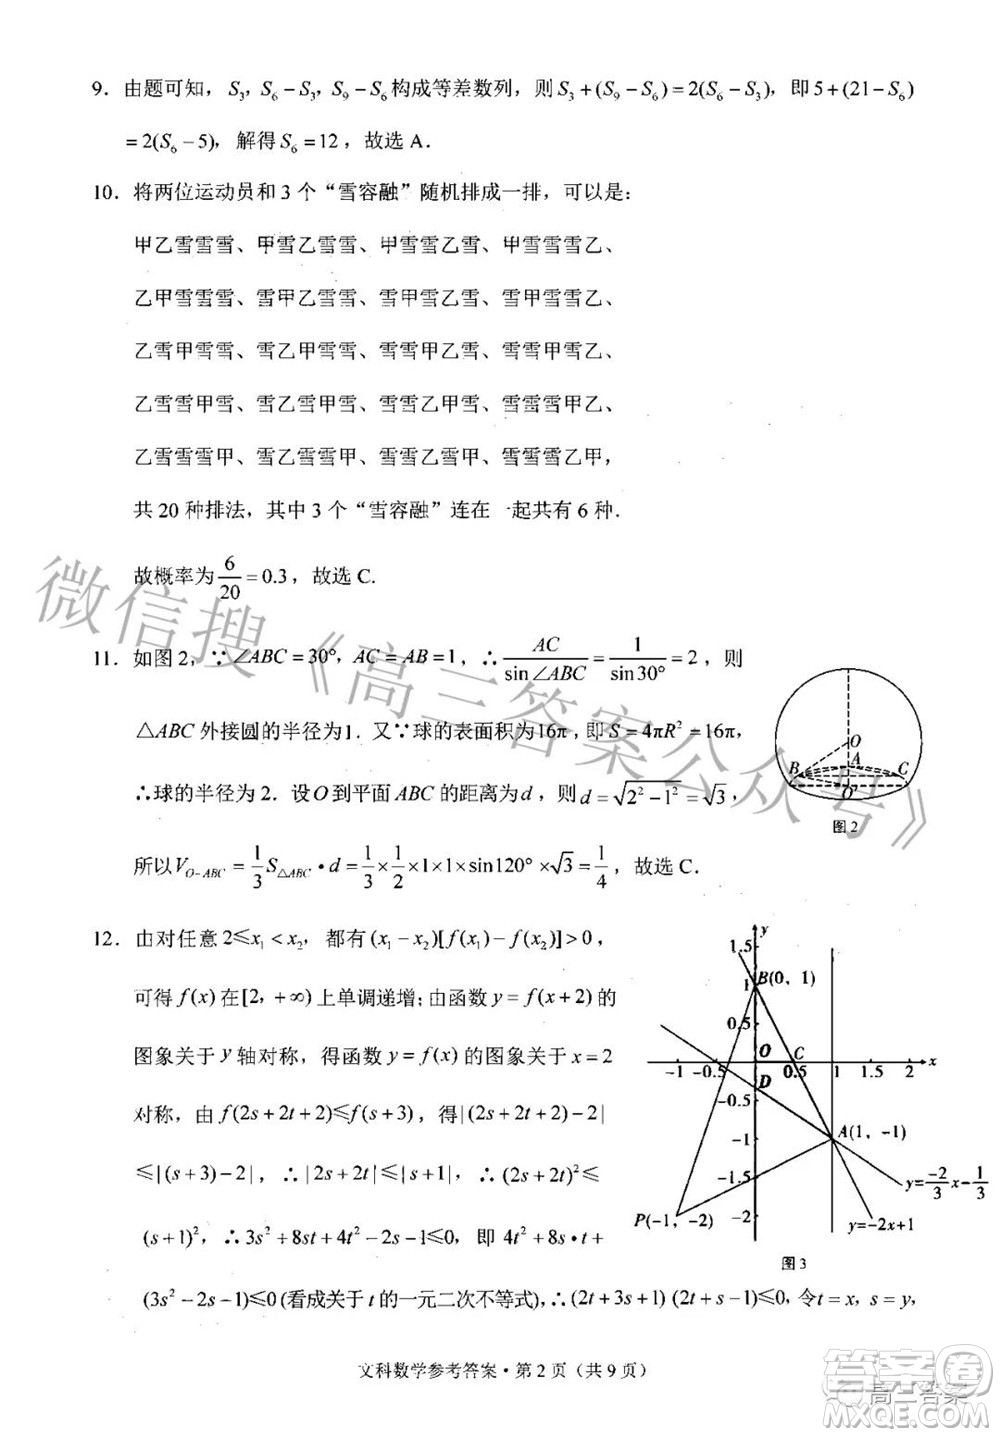 9．由题可知，S₃，S₆－S₃，S₉－S₆构成等差数列，则S₃＋(S₉－S₆)＝2(S₆－S₃)，即5＋(21－S₆)
＝2(S₆－5)，解得S₆＝12，故选A．
10．将两位运动员和3个“雪容融”随机排成一排，可以是：
甲乙雪雪雪、甲雪乙雪雪、甲雪雪乙雪、甲雪雪雪乙、
乙甲雪雪雪、雪甲乙雪雪、雪甲雪乙雪、雪甲雪雪乙、
乙雪甲雪雪、雪乙甲雪雪、雪雪甲乙雪、雪雪甲雪乙、
乙雪雪甲雪、雪乙雪甲雪、雪雪乙甲雪、雪雪雪甲乙、
乙雪雪雪甲、雪乙雪雪甲、雪雪乙雪甲、雪雪雪乙甲，
共20种排法，其中3个“雪容融”连在一起共有6种．
故概率为6/20＝0.3，故选C．
11．如图2，∵∠ABC＝30°，AC＝AB＝1，∴AC/sin∠ABC＝1/sin30°＝2，则
△ABC外接圆的半径为1．又∵球的表面积为16π，即S＝4πR²＝16π，
∴球的半径为2．设O到平面ABC的距离为d，则d＝√(2²－1²)＝√3，
所以V_{O－ABC}＝1/3 S_{△ABC}•d＝1/3×1/2×1×1×sin120°×√3＝1/4，故选C．
O
A
B
C
O′
图2
12．由对任意2≤x₁＜x₂，都有(x₁－x₂)[f(x₁)－f(x₂)]＞0，
可得f(x)在[2，＋∞)上单调递增；由函数y＝f(x＋2)的
图象关于y轴对称，得函数y＝f(x)的图象关于x＝2
对称，由f(2s＋2t＋2)≤f(s＋3)，得|(2s＋2t＋2)－2|
≤|(s＋3)－2|，∴|2s＋2t|≤|s＋1|，∴(2s＋2t)²≤
(s＋1)²，∴3s²＋8st＋4t²－2s－1≤0，即4t²＋8s•t＋
(3s²－2s－1)≤0(看成关于t的一元二次不等式)，∴(2t＋3s＋1)(2t＋s－1)≤0，令t＝x，s＝y，
y
1.5
1
B(0，1)
0.5
O
C
-1 -0.5 0.5 1 1.5 2 x
D
-0.5
-1
A(1，-1)
-1.5
y=-2/3x-1/3
P(-1，-2)
-2
y=-2x+1
图3
文科数学参考答案·第2页（共9页）
微信搜《高三答案公众号》
高三答案
答案圈
MXQE.COM